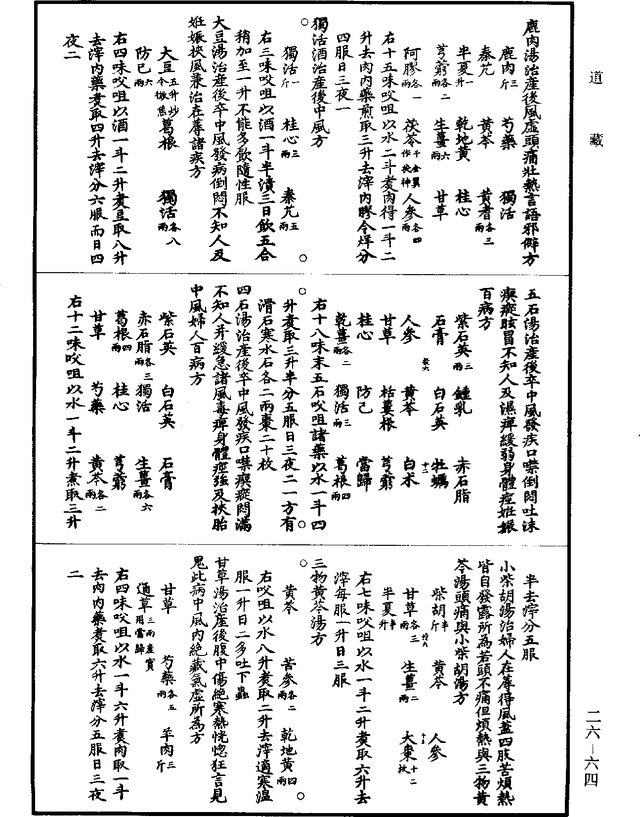 道藏
鹿肉湯治產後風虛頭痛壯熱言語邪僻方
鹿肉三斤 芍藥 獨活
秦艽 黃芩 黃耆各三兩
半夏一升 乾地黃 桂心
芎藭各二兩 生薑六兩 甘草
阿膠各一兩 茯苓千金翼作茯神 人參各四兩
右十五味㕮咀以水二斗煮肉得一斗二
升去肉內藥煎取三升去滓內膠令烊分
四服日三夜一
獨活酒治產後中風方
獨活一斤 桂心三兩 秦艽五兩
右三味㕮咀以酒一斗半漬三日飲五合
稍加至一升不能多飲隨性服
大豆湯治產後卒中風發病倒悶不知人及
妊娠挾風兼治在蓐諸疾方
大豆五升炒令微焦 葛根 獨活各八兩
防己六兩
右四味㕮咀以酒一斗二升煮豆取八升
去滓內藥煮取四升去滓分六服而日四
夜二
五石湯治產後卒中風發疾口噤倒悶吐沫
瘈瘲眩冒不知人及濕痺緩弱身體痙妊娠
百病方
紫石英三兩 鍾乳 赤石脂
石膏 白石英 牡蠣
人參 黃芩 白朮
甘草 栝蔞根 芎藭
桂心 防己 當歸
乾薑各二兩 獨活三兩 葛根四兩
右十八味末五石㕮咀諸藥以水一斗四
升煮取三升半分五服日三夜二一方有
滑石寒水石各二兩棗二十枚
四石湯治產後卒中風發疾口噤瘈瘲悶滿
不知人并緩急諸風毒痺身體痙強及挾胎
中風婦人百病方
紫石英 白石英 石膏
赤石脂各三兩 獨活 生薑各六兩
葛根四兩 桂心 芎藭
甘草 芍藥 黃芩各二兩
右十二味㕮咀以水一斗二升煮取三升
半去滓分五服
小柴胡湯治婦人在蓐得風蓋四肢苦煩熱
皆自發露所為若頭不痛但煩熱與三物黃
芩湯頭痛與小柴胡湯方
柴胡半斤 黃芩 人參
甘草各三兩 生薑二兩 大棗十二枚
半夏半升
右七味㕮咀以水一斗二升煮取六升去
滓每服一升日三服
三物黃芩湯方
黃芩 苦參各二兩 乾地黃四兩
右㕮咀以水八升煮取二升去滓適寒溫
服一升日二多吐下蟲
甘草湯治產後腹中傷絕寒熱恍惚狂言見
鬼此病中風內絕藏氣虛所為方
甘草 芍藥各五兩 羊肉三斤
通草三兩產寶用當歸
右四味㕮咀以水一斗六升煮肉取一斗
去肉內藥煮取六升去滓分五服日三夜
二
二六—六四